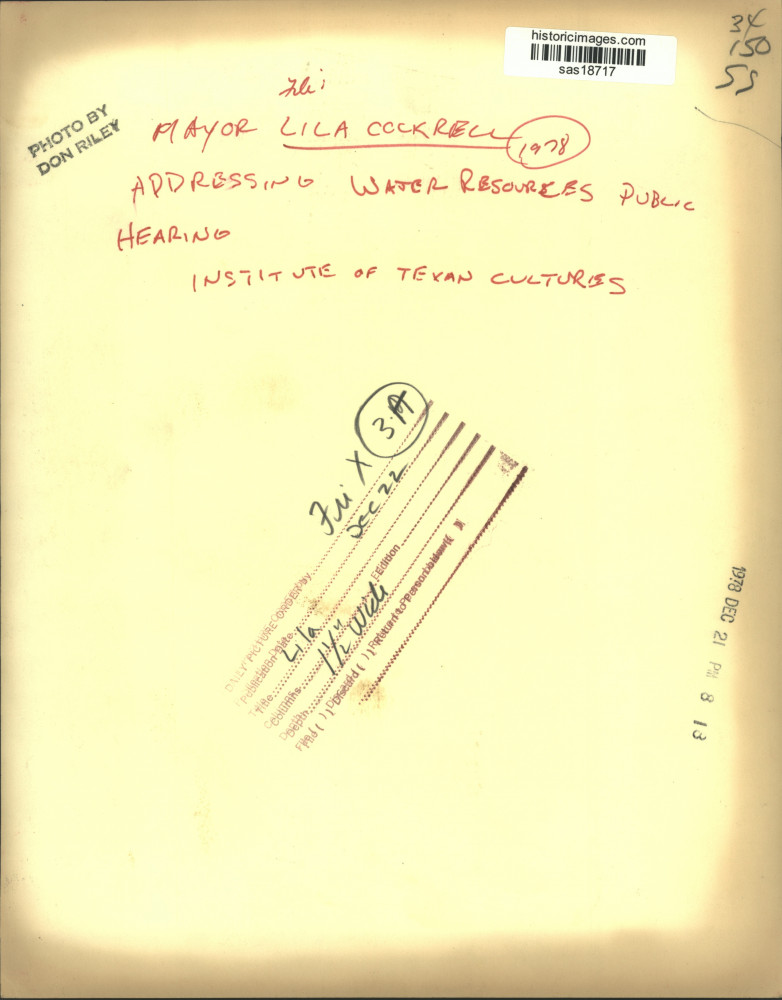 historicimages.com
sas18717
34
150
SS
File:
PHOTO BY
DON RILEY
MAYOR LILA COCKRELL 1978
ADDRESSING WATER RESOURCES PUBLIC
HEARING
INSTITUTE OF TEXAN CULTURES
Fri X 3-A
DEC 22
DAILY PICTURE ORDER
Publication Date
Title Lila
Columns 1 1/2" Wide Edition
Depth
Filed ( ) Discard ( ) Return to Person
1978 DEC 21 PM 8 13